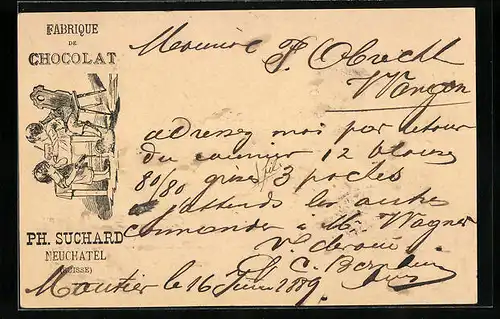 FABRIQUE
DE
CHOCOLAT
PH. SUCHARD
NEUCHATEL
(SUISSE)
Monsieur P. Obrecht
Wangen
adressez moi par retour
du courrier 12 blouses
80/80 grises 3 poches
J'attends les autres
commander à M. Wagner
V. dévoué
Moutier le 16 Juin 1889